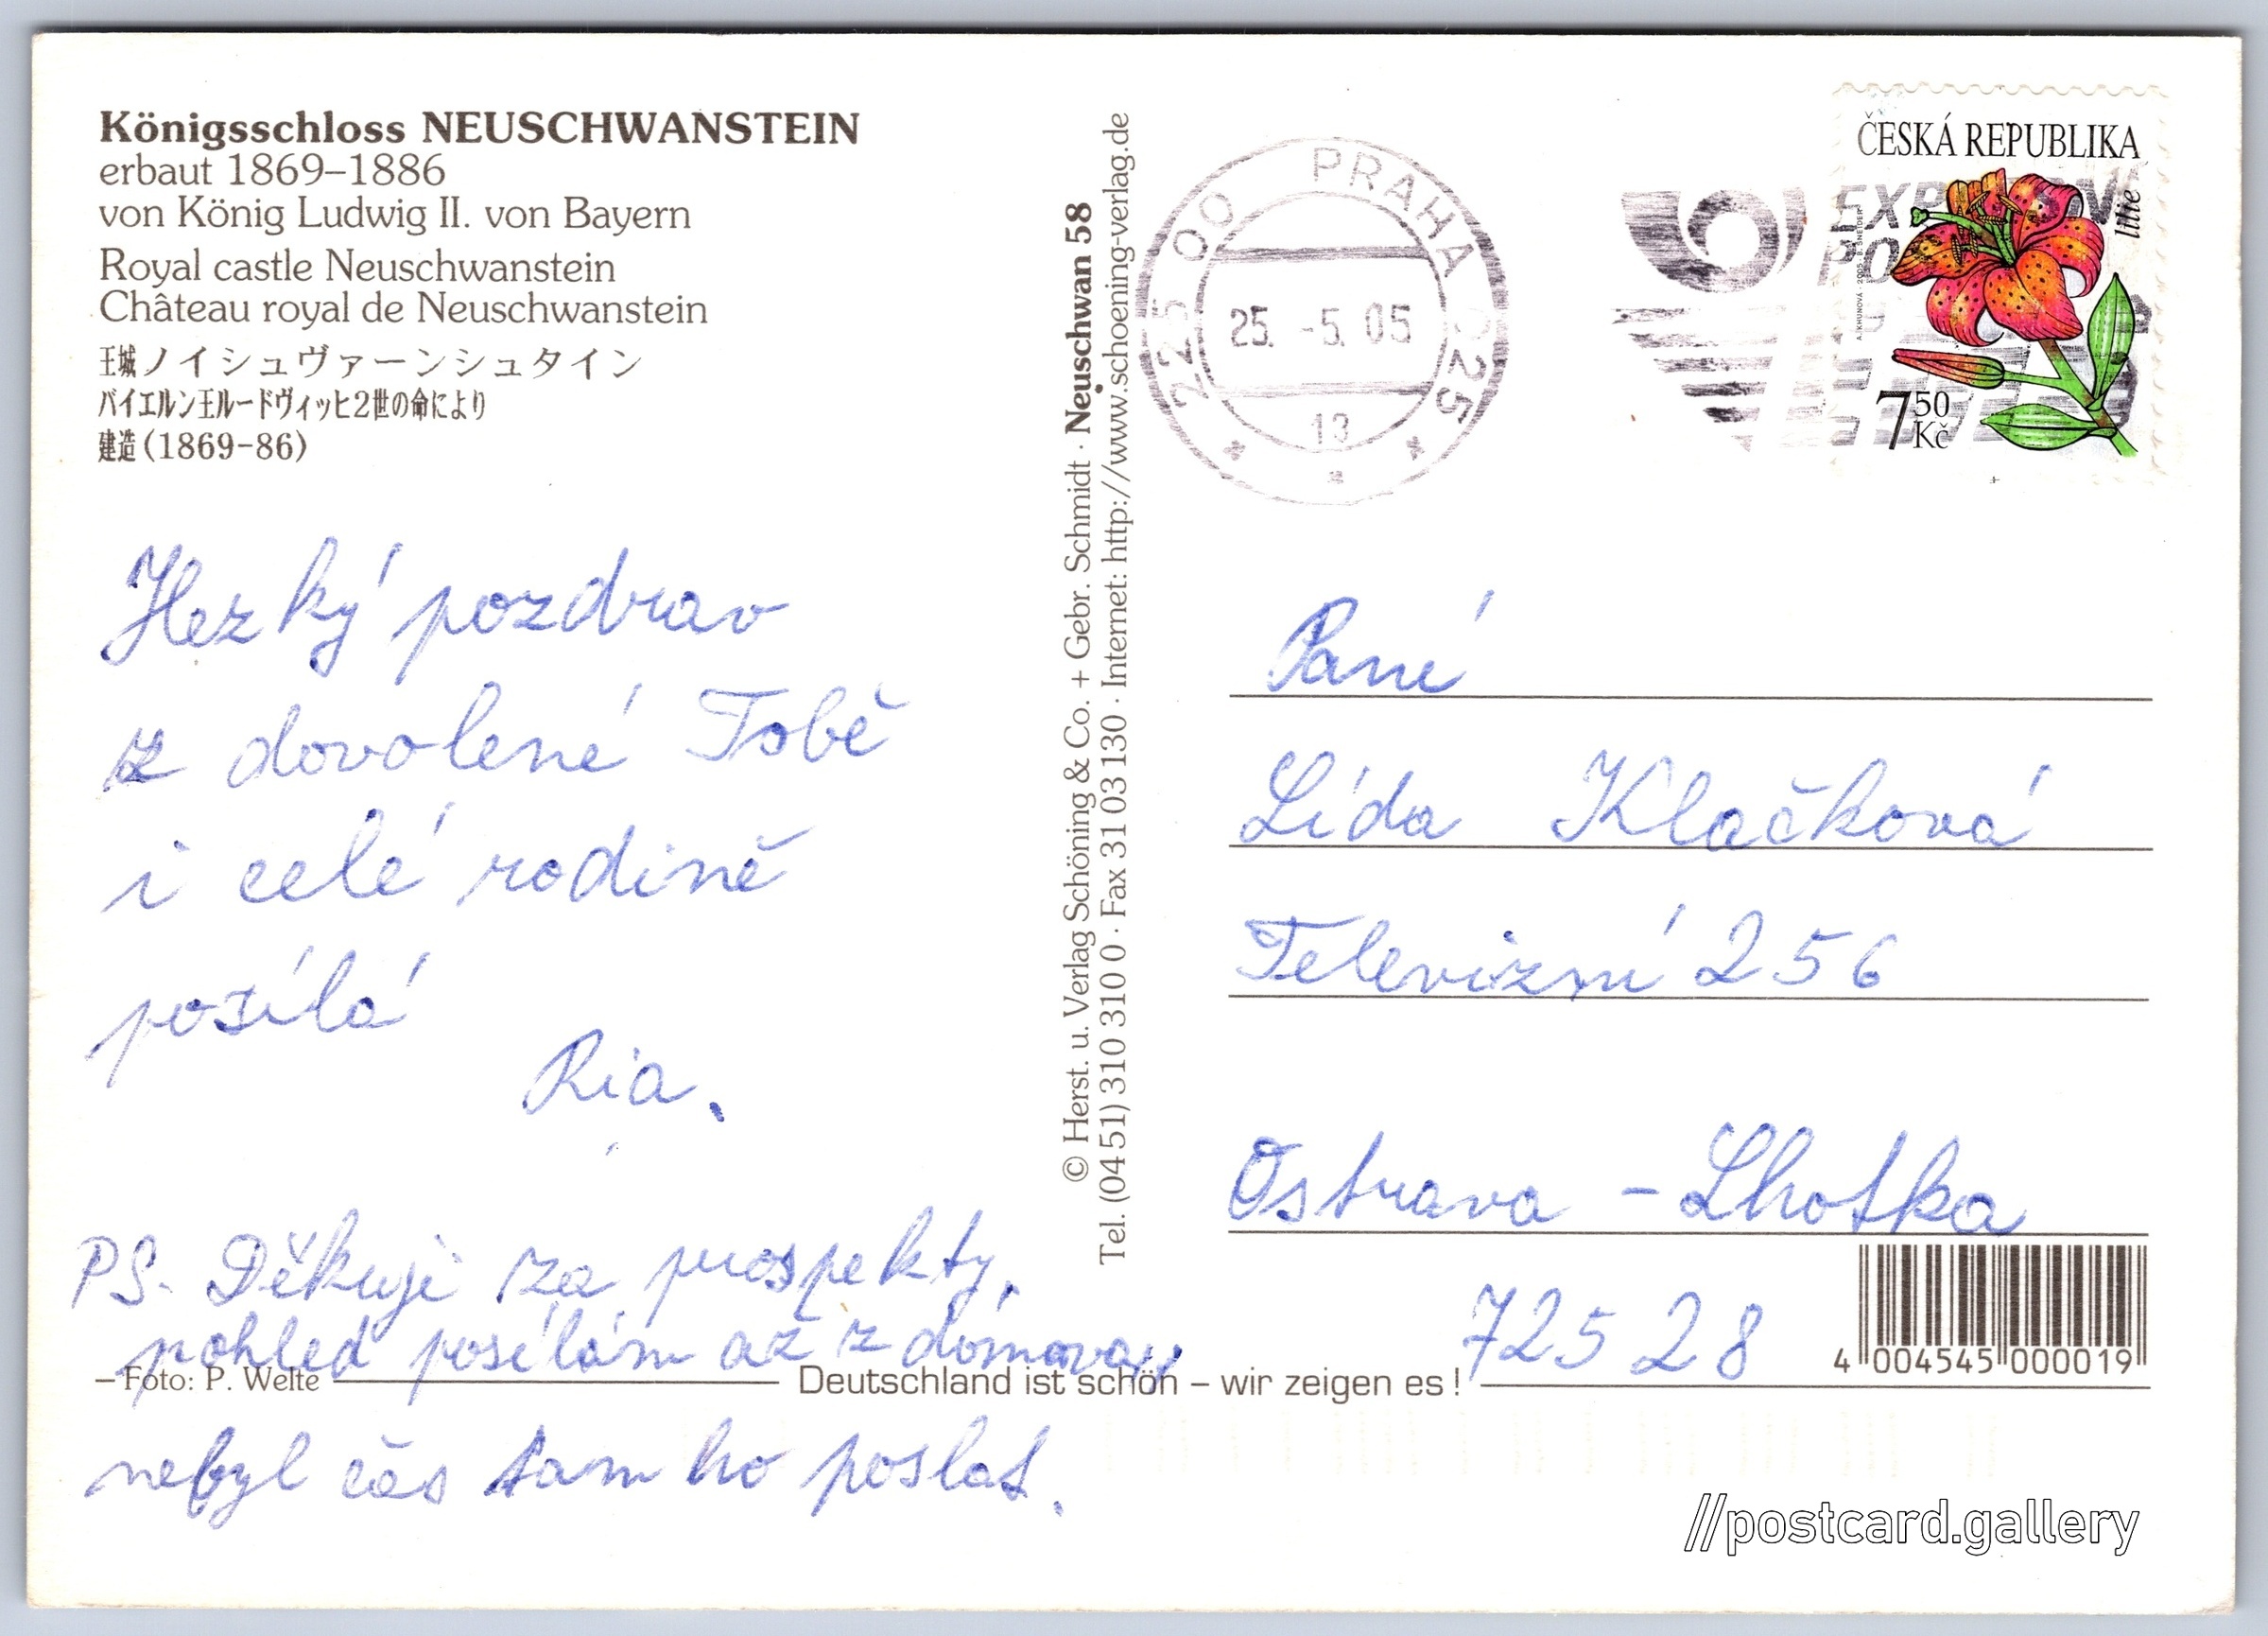 Königsschloss NEUSCHWANSTEIN
erbaut 1869–1886
von König Ludwig II. von Bayern
Royal castle Neuschwanstein
Château royal de Neuschwanstein
王城ノイシュヴァーンシュタイン
バイエルン王ルードヴィッヒ2世の命により
建造(1869-86)
Hezký pozdrav
z dovolené Tobě
i celé rodině
posílá
Ria.
PS. Děkuji za prospekty,
pohled posílám až z domova,
nebyl čas tam ho poslat.
– Foto: P. Welte
Deutschland ist schön – wir zeigen es !
© Herst. u. Verlag Schöning & Co. + Gebr. Schmidt · Neuschwan 58
Tel. (04 51) 310 310 0 · Fax 31 03 130 · Internet: http://www.schoening-verlag.de
225 00 PRAHA 025
25. -5. 05
13
ČESKÁ REPUBLIKA
lilie
7 50 Kč
Paní
Lída Klačková
Televizní 256
Ostrava - Lhotka
725 28
4 004545 000019
//postcard.gallery